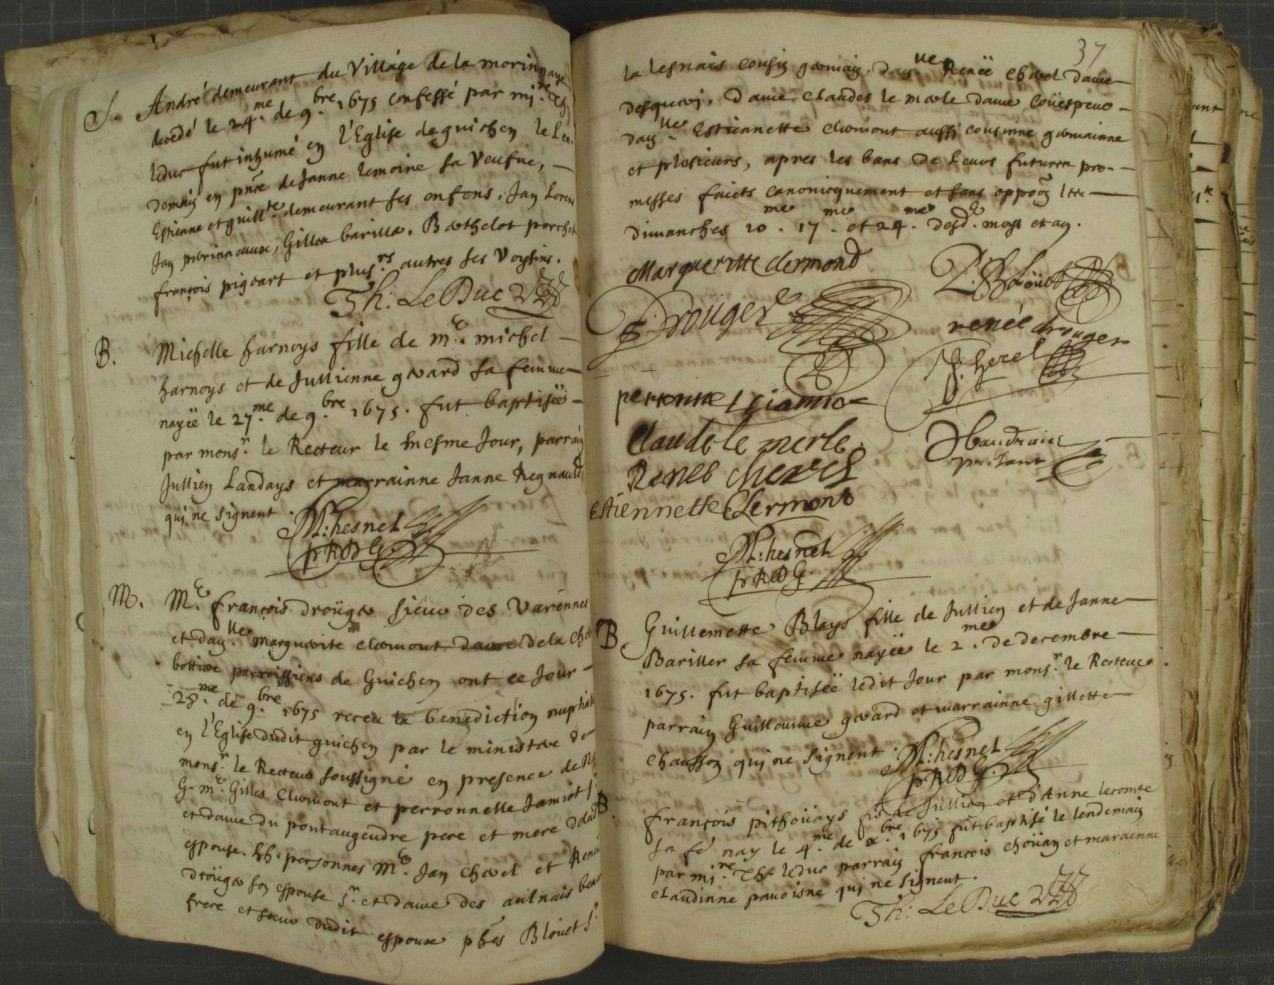 S. André demeurant du Village de la morinnaye
decedé le 24.me de 9.bre 1675 confessé par mi.re Th
leduc fut inhumé en l'Eglise de guichen le Len
demain en pnce de Janne lemoine sa Veufue,
Estienne et guill.tte demeurant ses enfens, Jan Lorens
Jan perinneaux, Gilles barille, Berthelot porcher
françois pigeart et plus.rs autres ses Voysins.
Th: Le Duc
B. Michelle harnoys fille de m.e michel
harnoys et de Jullienne gerard sa femme
nayë le 27.me de 9.bre 1675. fut baptisëe
par mons.r le Recteur le mesme Jour, parrain
Jullien Landays et marrainne Janne Regnauld
qui ne signent.
M: hesnel
p.r R D G.
M. M.e françois droüger sieur des Varennes
et day.lle marguerite clermont dame de la
bottiere parroissiens de Guichen ont ce Jour
28.me de 9.bre 1675 receu la benediction nuptiale
en l'Eglise dudit guichen par le ministere de
mons.r le Recteur soussigné en presence de
G. m.e Gilles Clermont et perronnelle Jamiot s.r
et dame du pontaugendre pere et mere de lad
espouse. hh. personnes M.e Jan cherel et Renée
droüger son espouse s.r et dame des aulnais beau
frere et soeur dudit espoux phes Bloüet s.r
37
la lesnais cousin germain, day.lle Renëe cherel dame
desquevi, dame claudes le merle dame
day.lle Estiennette clermont aussi cousinne germainne
et plusieurs, apres les bans de leurs futures pro-
messes faicts canonicquement et sans oppoon les
dimanches 10.me 17.me et 24.me desd. moys et an.
Margueritte clermond
P. Bloüet
F. Drouger
renée drouger
J. Cherel
perronnelle Jamio
Claude le merle
Renee cherel
Estiennette Clermont
M: hesnel
p.r R D G.
B Guillemette Blays fille de Jullien et de Janne
Bariller sa femme nayëe le 2.me de decembre
1675. fut baptisëe ledit Jour par mons.r le Recteur
parrain Guillaume gerard et marrainne gillette
chausson qui ne signent.
M: hesnel
p.r R D G.
B. françois pithoüays fils de Jullien et d'Anne lecomte
sa fe. nay le 4.me de x.bre 1675 fut baptisé le lendemain
par mi.re Th. leduc parrain françois choüan et marainne
claudinne pauoisne qui ne signent.
Th: Le Duc